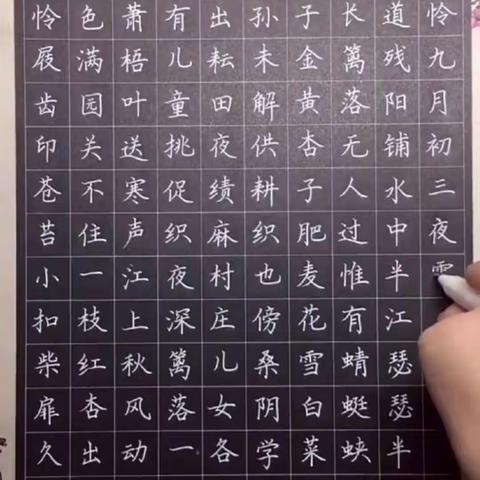 怜屐齿印苍苔小扣柴扉久
色满园关不住一枝红杏出
萧梧叶送寒声江上秋风动
有儿童挑促织夜深篱落一
出耘田夜绩麻村庄儿女各
孙未解供耕织也傍桑阴学
子金黄杏子肥麦花雪白菜
长篱落无人过惟有蜻蜓蛱
道残阳铺水中半江瑟瑟半
怜九月初三夜